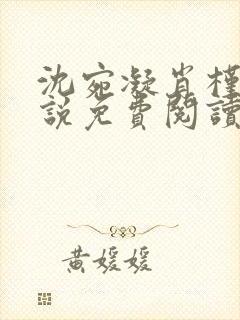 沈宛凝肖槿
說免費閱讀
黃媛媛